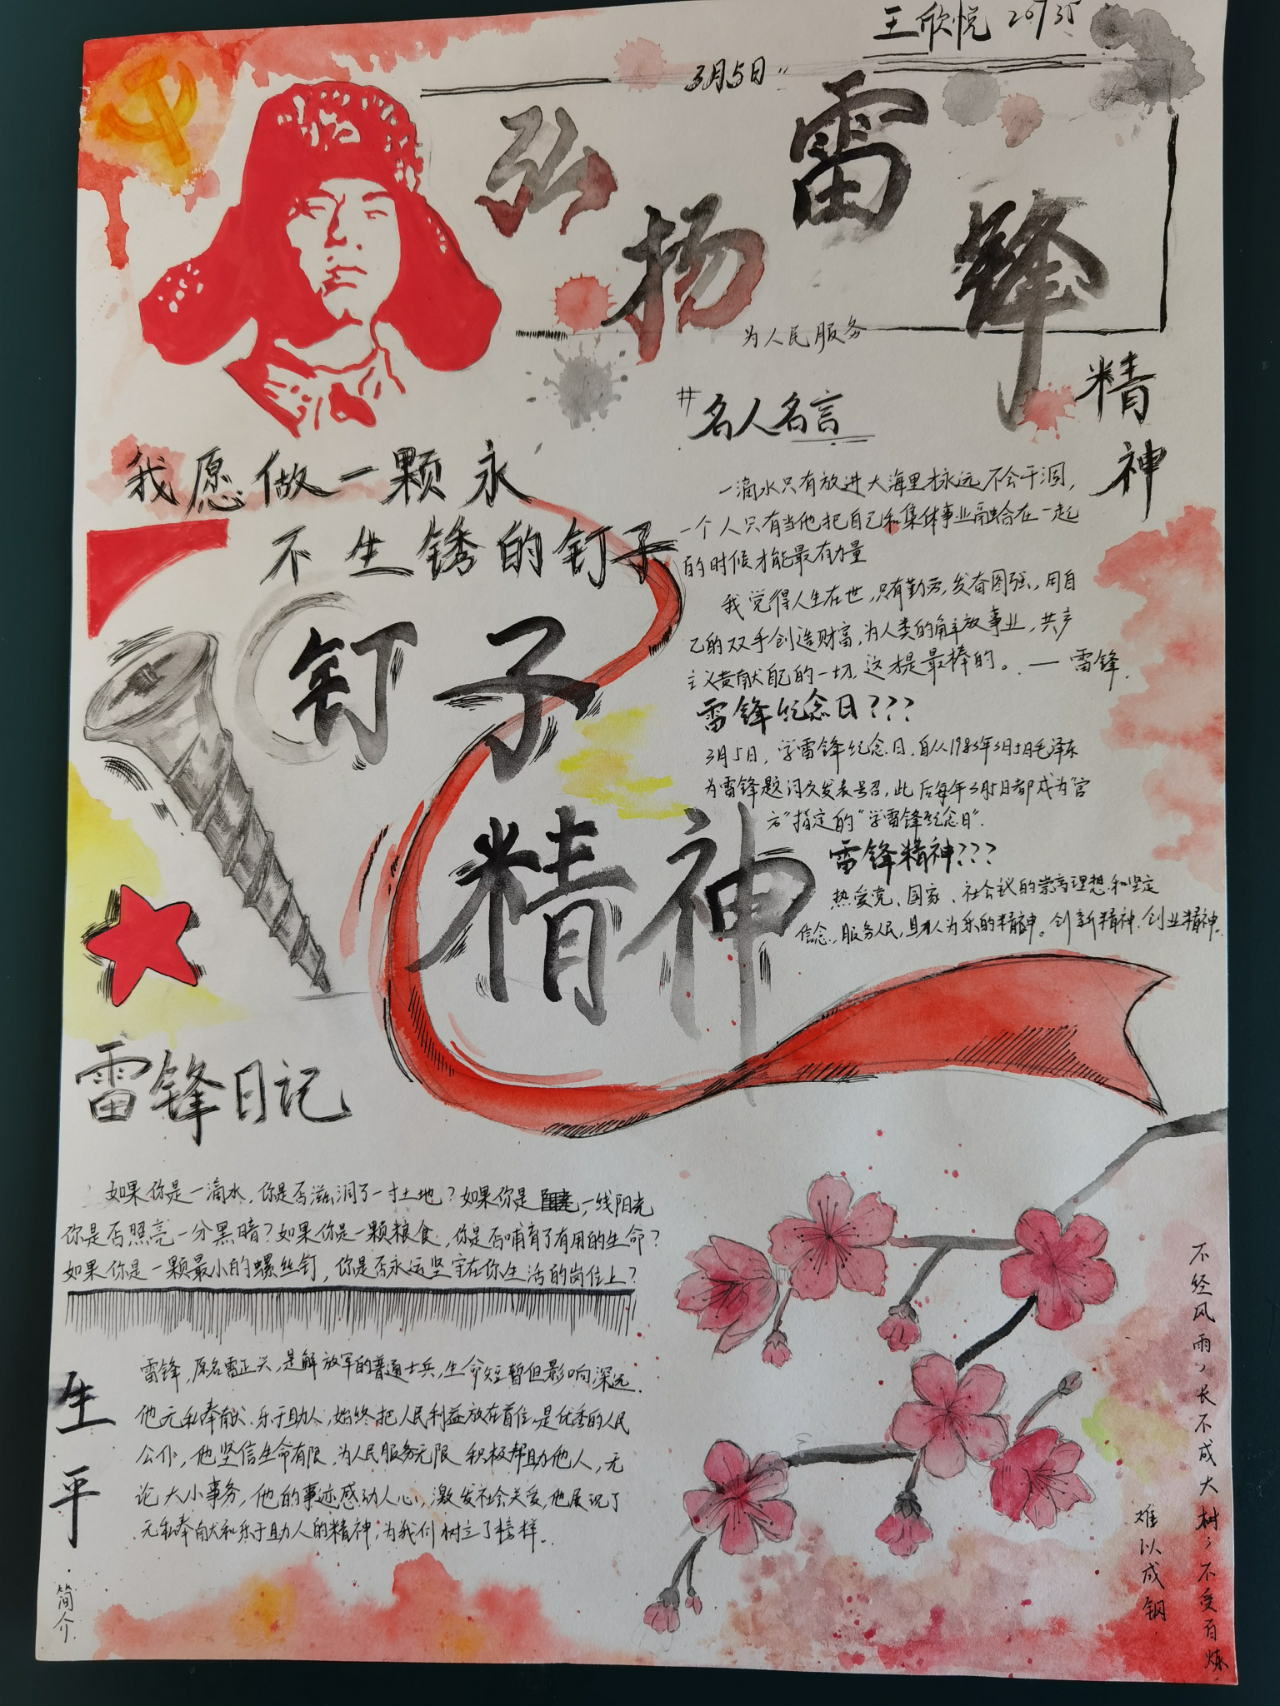 王欣悦
3月5日
弘扬雷锋
精神
为人民服务
#名人名言
一滴水只有放进大海里才永远不会干涸,
一个人只有当他把自己和集体事业融合在一起
的时候才能最有力量
我觉得人生在世,只有勤劳,发奋图强,用自
己的双手创造财富,为人类的解放事业,共产
主义贡献自己的一切,这才是最棒的。—雷锋.
雷锋纪念日???
3月5日,学雷锋纪念日.自从1983年3月5日毛泽东
为雷锋题词及发表号召,此后每年3月5日都成为"官
方"指定的"学雷锋纪念日".
雷锋精神???
热爱党、国家、社会议的崇高理想和坚定
信念.服务人民,助人为乐的精神。创新精神.创业精神.
我愿做一颗永
不生锈的钉子
钉子
精神
雷锋日记
如果你是一滴水,你是否滋润了一寸土地?如果你是一线阳光
你是否照亮一分黑暗?如果你是一颗粮食,你是否哺育了有用的生命?
如果你是一颗最小的螺丝钉,你是否永远坚守在你生活的岗位上?
生平
简介
雷锋,原名雷正兴,是解放军的普通士兵,生命短暂但影响深远.
他无私奉献.乐于助人,始终把人民利益放在首位.是优秀的人民
公仆,他坚信生命有限,为人民服务无限 积极帮助他人,无
论大小事务,他的事迹感动人心,激发社会关爱,他展现了
无私奉献和乐于助人的精神,为我们树立了榜样.
不经风雨,长不成大树,不受百炼
难以成钢